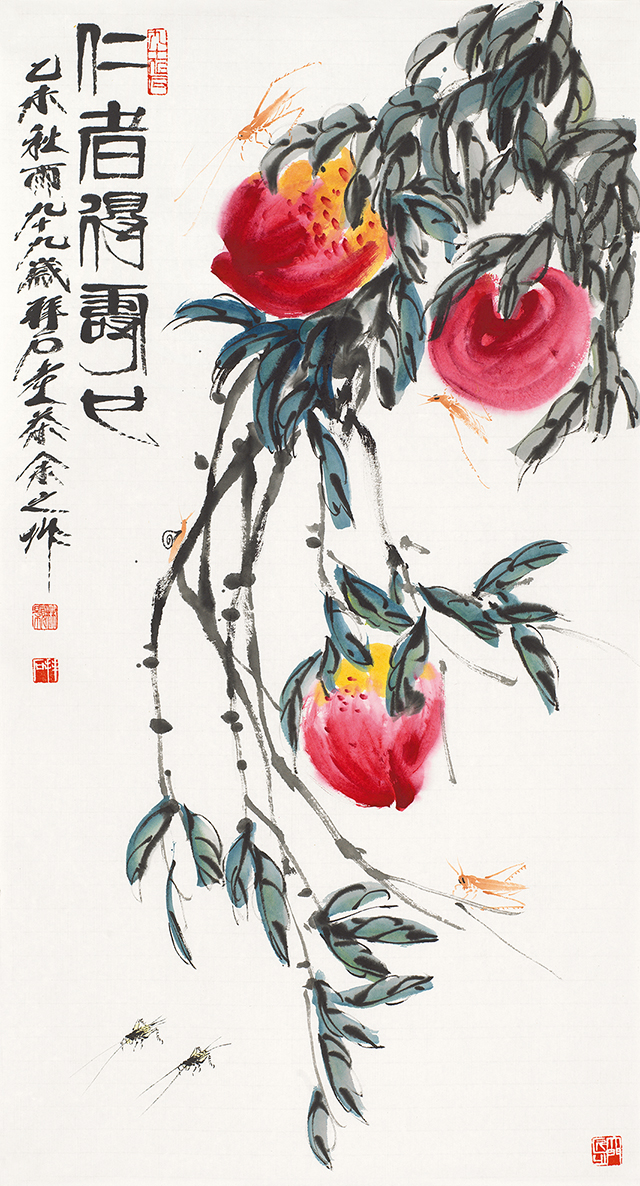 仁者得壽也
乙未秋雨九十九歲拜石余之作